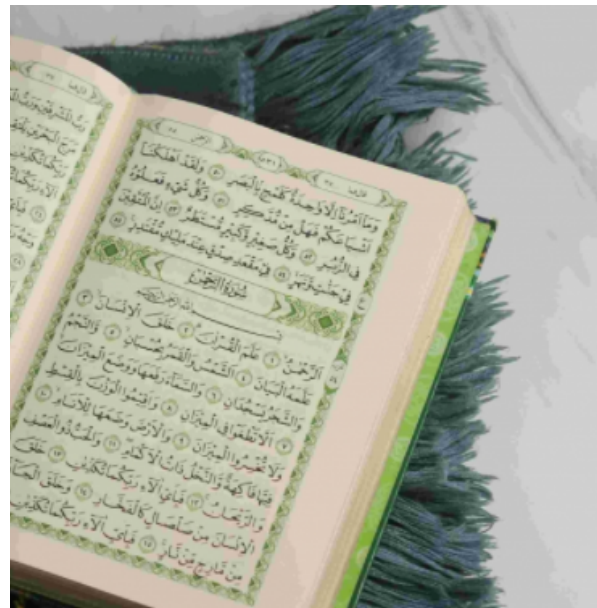 الرحمن ٥٥
٥٣١
وَمَا أَمْرُنَا إِلَّا وَاحِدَةٌ كَلَمْحٍ بِالْبَصَرِ ٥٠ وَلَقَدْ أَهْلَكْنَا
أَشْيَاعَكُمْ فَهَلْ مِنْ مُدَّكِرٍ ٥١ وَكُلُّ شَيْءٍ فَعَلُوهُ
فِي الزُّبُرِ ٥٢ وَكُلُّ صَغِيرٍ وَكَبِيرٍ مُسْتَطَرٌ ٥٣ إِنَّ الْمُتَّقِينَ
فِي جَنَّاتٍ وَنَهَرٍ ٥٤ فِي مَقْعَدِ صِدْقٍ عِنْدَ مَلِيكٍ مُقْتَدِرٍ ٥٥
سُورَةُ الرَّحْمٰنِ
بِسْمِ اللهِ الرَّحْمٰنِ الرَّحِيمِ
اَلرَّحْمٰنُ ١ عَلَّمَ الْقُرْاٰنَ ٢ خَلَقَ الْاِنْسَانَ ٣
عَلَّمَهُ الْبَيَانَ ٤ اَلشَّمْسُ وَالْقَمَرُ بِحُسْبَانٍ ٥ وَالنَّجْمُ
وَالشَّجَرُ يَسْجُدَانِ ٦ وَالسَّمَاءَ رَفَعَهَا وَوَضَعَ الْمِيزَانَ
٧ اَلَّا تَطْغَوْا فِي الْمِيزَانِ ٨ وَاَقِيمُوا الْوَزْنَ بِالْقِسْطِ
وَلَا تُخْسِرُوا الْمِيزَانَ ٩ وَالْاَرْضَ وَضَعَهَا لِلْاَنَامِ ١٠
فِيهَا فَاكِهَةٌ وَالنَّخْلُ ذَاتُ الْاَكْمَامِ ١١ وَالْحَبُّ ذُو الْعَصْفِ
وَالرَّيْحَانُ ١٢ فَبِاَيِّ اٰلَاءِ رَبِّكُمَا تُكَذِّبَانِ ١٣ خَلَقَ
الْاِنْسَانَ مِنْ صَلْصَالٍ كَالْفَخَّارِ ١٤ وَخَلَقَ الْجَانَّ
مِنْ مَارِجٍ مِنْ نَارٍ ١٥ فَبِاَيِّ اٰلَاءِ رَبِّكُمَا تُكَذِّبَانِ